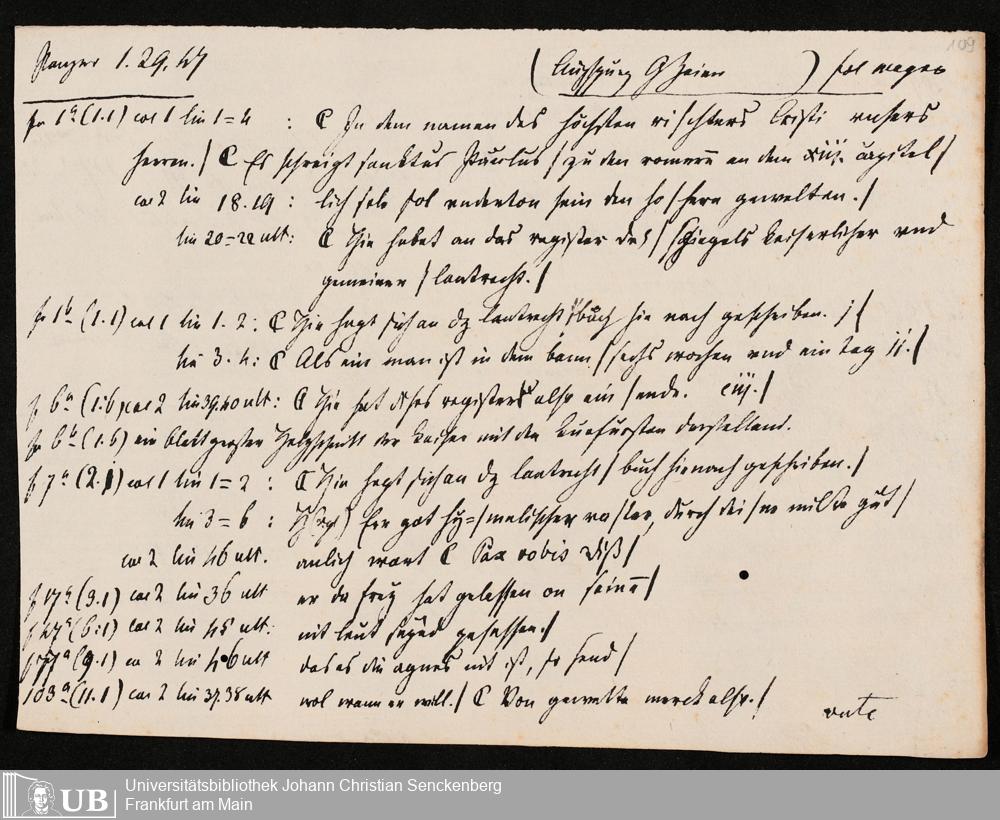 109
Panzer 1. 29. 47 (Augspurg G Zainer) fol magno
fo 1a (1.1) col 1 lin 1=4 : C In dem namen des höchsten richters Cristi unsers
herren. / C Es schreigt sanktus Paulus / zu den romern an dem xiij. capitel /
col 2 lin 18. 19 : lich sele sol underton sein den ho / hern gewelten. /
lin 20=22 ult: C Hie hebet an das register des / Spiegels keiserlicher und
gemeiner / lantrecht. /
fo 1b (1.1) col 1 lin 1. 2 : C Hie hept sich an dz lantrechtbuch hie nach geschriben. j /
lin 3. 4 : C Als ein man ist in dem bann / sechs wochen und ein tag ij. /
f 6a (1.6) col 2 lin 39.40 ult: C Hie hat dises register also ein / ende. ciij. /
fo 6b (1.6) ein blattgrosser Holzschnitt der Kaiser mit den Kurfürsten darstellend.
f 7a (2.1) col 1 lin 1=2 : C Hie hept sich an dz lantrecht / buch hienach geschriben. /
lin 3=6 : Herr got hy= / melischer vatter, durch dei / ne milte güt /
col 2 lin 46 ult. anlich wart C Pax vobis Diß /
f 17a (3.1) col 2 lin 36 ult er da frey hat gelassen on seinen /
f 47a (6.1) col 2 lin 45 ult: nit leut gesessen. /
f 77a (9.1) co 2 lin 46 ult das es die agnes nit ist, so send /
103a (11.1) col 2 lin 37.38 ult wol wann er will. / C Von gewette merck also. /
verte
UB Universitätsbibliothek Johann Christian Senckenberg
Frankfurt am Main